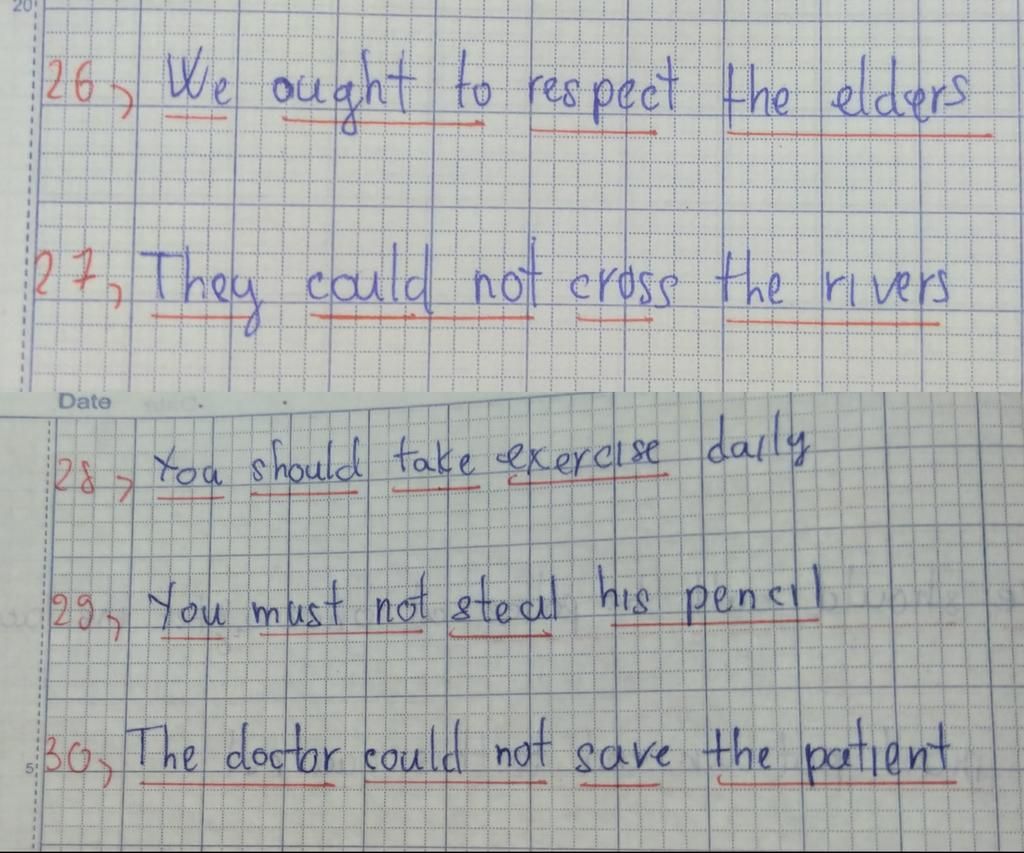 20
26, We ought to respect the elders
27, They could not cross the rivers
Date
28, You should take exercise daily
29, You must not steal his pencil
5
30, The doctor could not save the patient